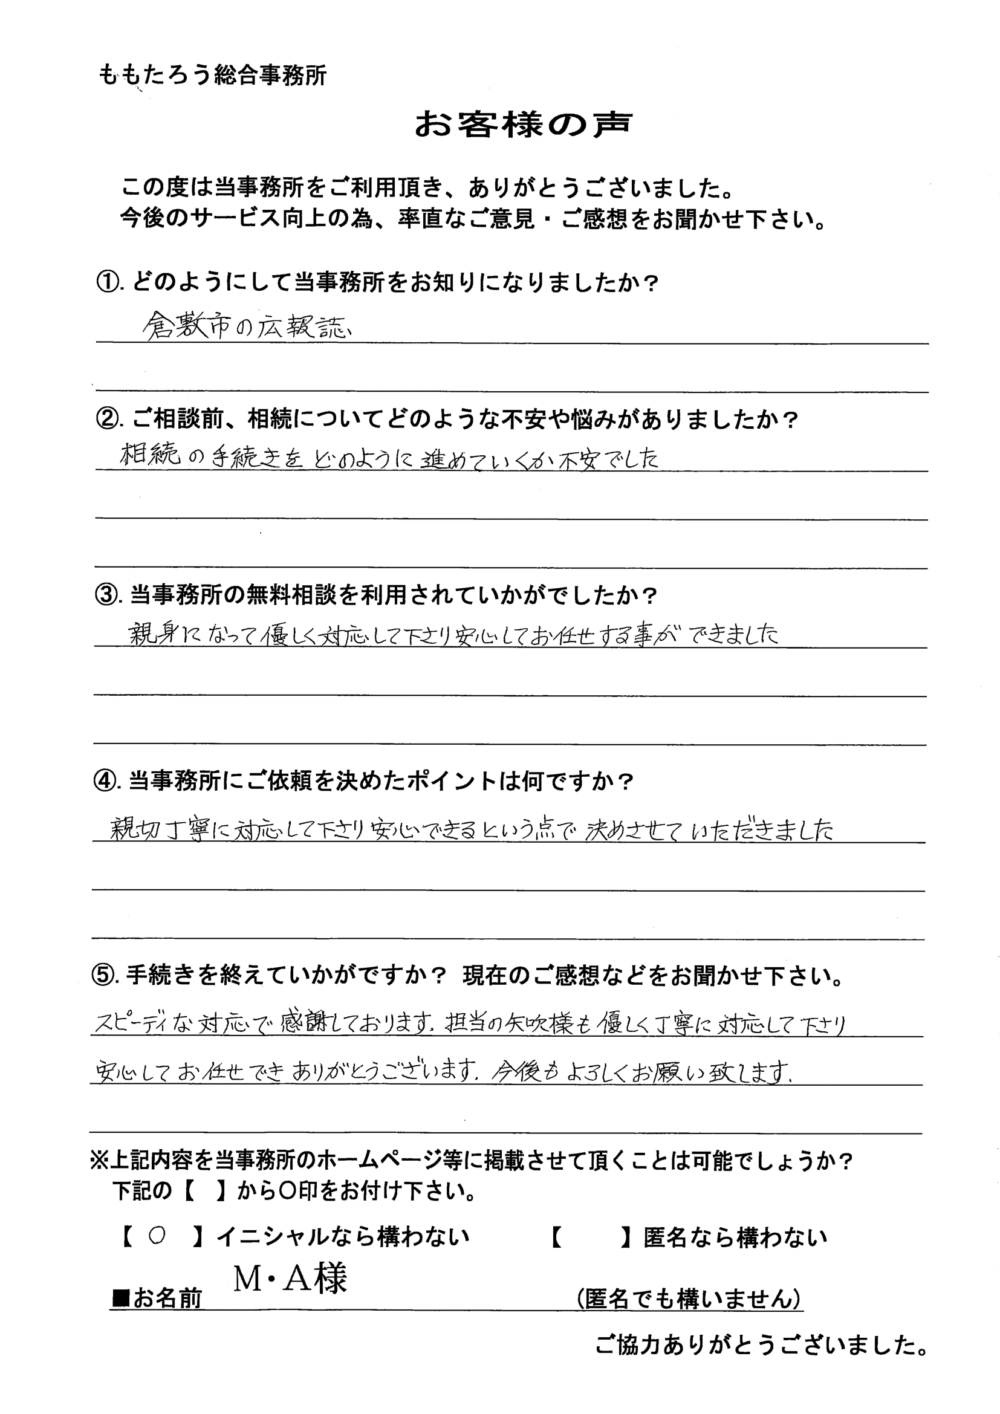 ももたろう総合事務所
お客様の声
この度は当事務所をご利用頂き、ありがとうございました。
今後のサービス向上の為、率直なご意見・ご感想をお聞かせ下さい。
①.どのようにして当事務所をお知りになりましたか？
倉敷市の広報誌、
②.ご相談前、相続についてどのような不安や悩みがありましたか？
相続の手続きをどのように進めていくか不安でした
③.当事務所の無料相談を利用されていかがでしたか？
親身になって優しく対応して下さり安心してお任せする事ができました
④.当事務所にご依頼を決めたポイントは何ですか？
親切丁寧に対応して下さり安心できるという点で決めさせていただきました
⑤.手続きを終えていかがですか？ 現在のご感想などをお聞かせ下さい。
スピーディな対応で感謝しております.担当の矢吹様も優しく丁寧に対応して下さり
安心してお任せできありがとうございます.今後もよろしくお願い致します.
※上記内容を当事務所のホームページ等に掲載させて頂くことは可能でしょうか？
下記の【　】から〇印をお付け下さい。
【 〇 】イニシャルなら構わない　【　　】匿名なら構わない
■お名前 M・A様 (匿名でも構いません)
ご協力ありがとうございました。